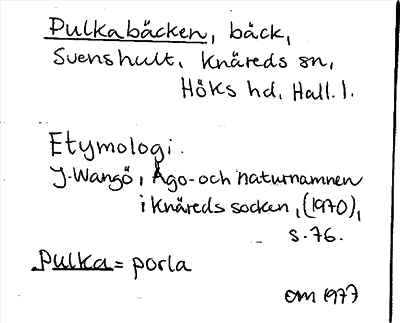 Pulkabäcken, bäck,
Svenshult, Knäreds sn,
Höks hd, Hall. l.
Etymologi.
J. Wangö, Ägo- och naturnamnen
i Knäreds socken, (1970),
s. 76.
Pulka = porla
OM 1977